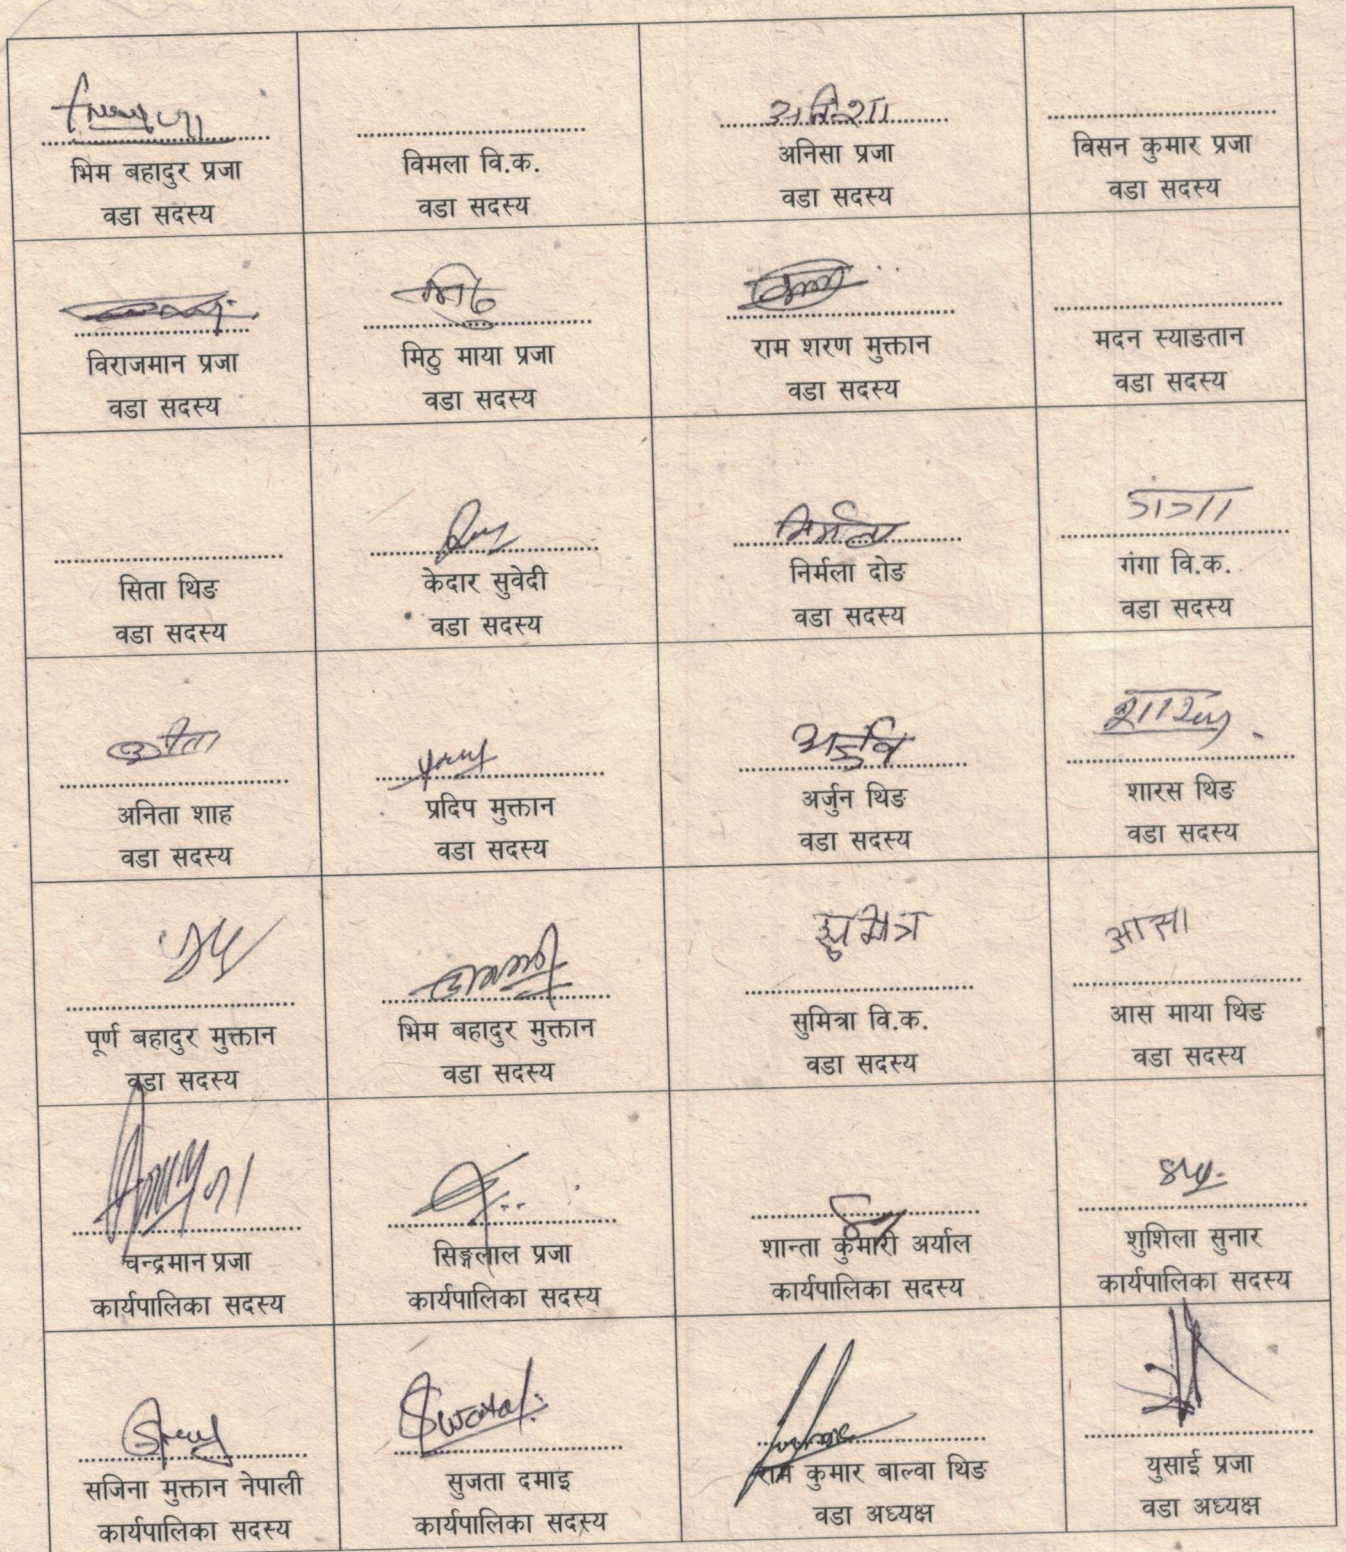 भिम बहादुर प्रजा
वडा सदस्य
विमला वि.क.
वडा सदस्य
अनिशा
अनिसा प्रजा
वडा सदस्य
विसन कुमार प्रजा
वडा सदस्य
विराजमान प्रजा
वडा सदस्य
मिठु
मिठु माया प्रजा
वडा सदस्य
राम शरण मुक्तान
वडा सदस्य
मदन स्याङतान
वडा सदस्य
सिता थिङ
वडा सदस्य
केदार सुवेदी
वडा सदस्य
निर्मला
निर्मला दोङ
वडा सदस्य
गंगा वि.क.
वडा सदस्य
अनिता शाह
वडा सदस्य
प्रदिप मुक्तान
वडा सदस्य
अर्जुन थिङ
वडा सदस्य
शारस थिङ
वडा सदस्य
पूर्ण बहादुर मुक्तान
वडा सदस्य
भिम बहादुर मुक्तान
वडा सदस्य
सुमित्रा वि.क.
वडा सदस्य
आसा
आस माया थिङ
वडा सदस्य
चन्द्रमान प्रजा
कार्यपालिका सदस्य
सिङ्गलाल प्रजा
कार्यपालिका सदस्य
शान्ता कुमारी अर्याल
कार्यपालिका सदस्य
शुशिला सुनार
कार्यपालिका सदस्य
सजिना मुक्तान नेपाली
कार्यपालिका सदस्य
सुजता दमाइ
कार्यपालिका सदस्य
राम कुमार बाल्वा थिङ
वडा अध्यक्ष
युसाई प्रजा
वडा अध्यक्ष